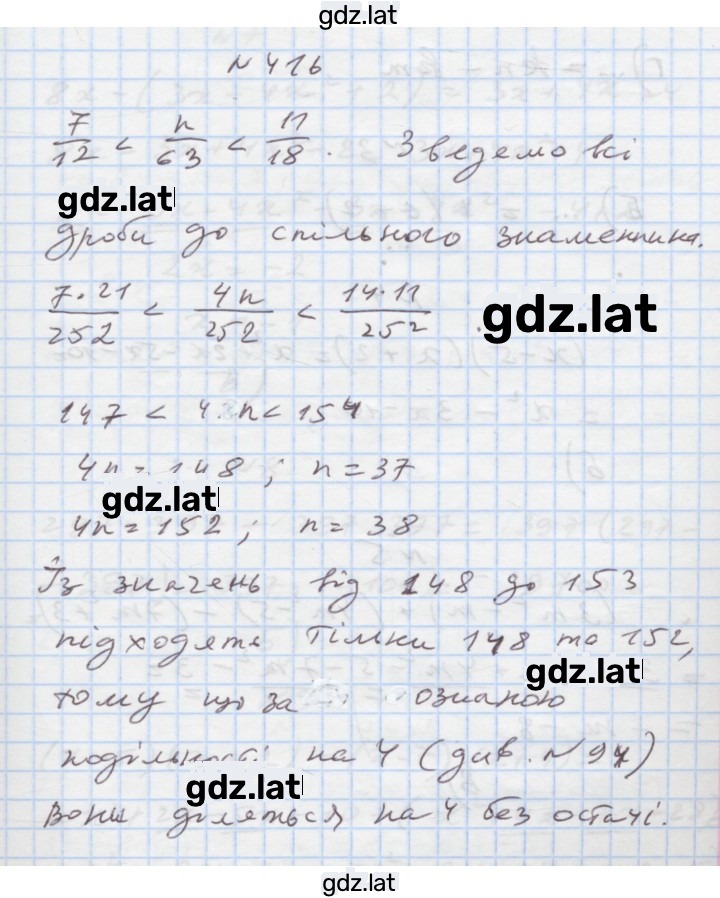 gdz.lat
№ 416
7/12 < n/63 < 11/18. Зведемо всі
gdz.lat
дроби до спільного знаменника.
7·21/252 < 4n/252 < 14·11/252.
gdz.lat
147 < 4n < 154
4n = 148; n = 37
gdz.lat
4n = 152; n = 38
Із значень від 148 до 153
підходять тільки 148 та 152,
gdz.lat
тому що за ознакою
подільності на 4 (див. № 94)
gdz.lat
вони діляться на 4 без остачі.
gdz.lat